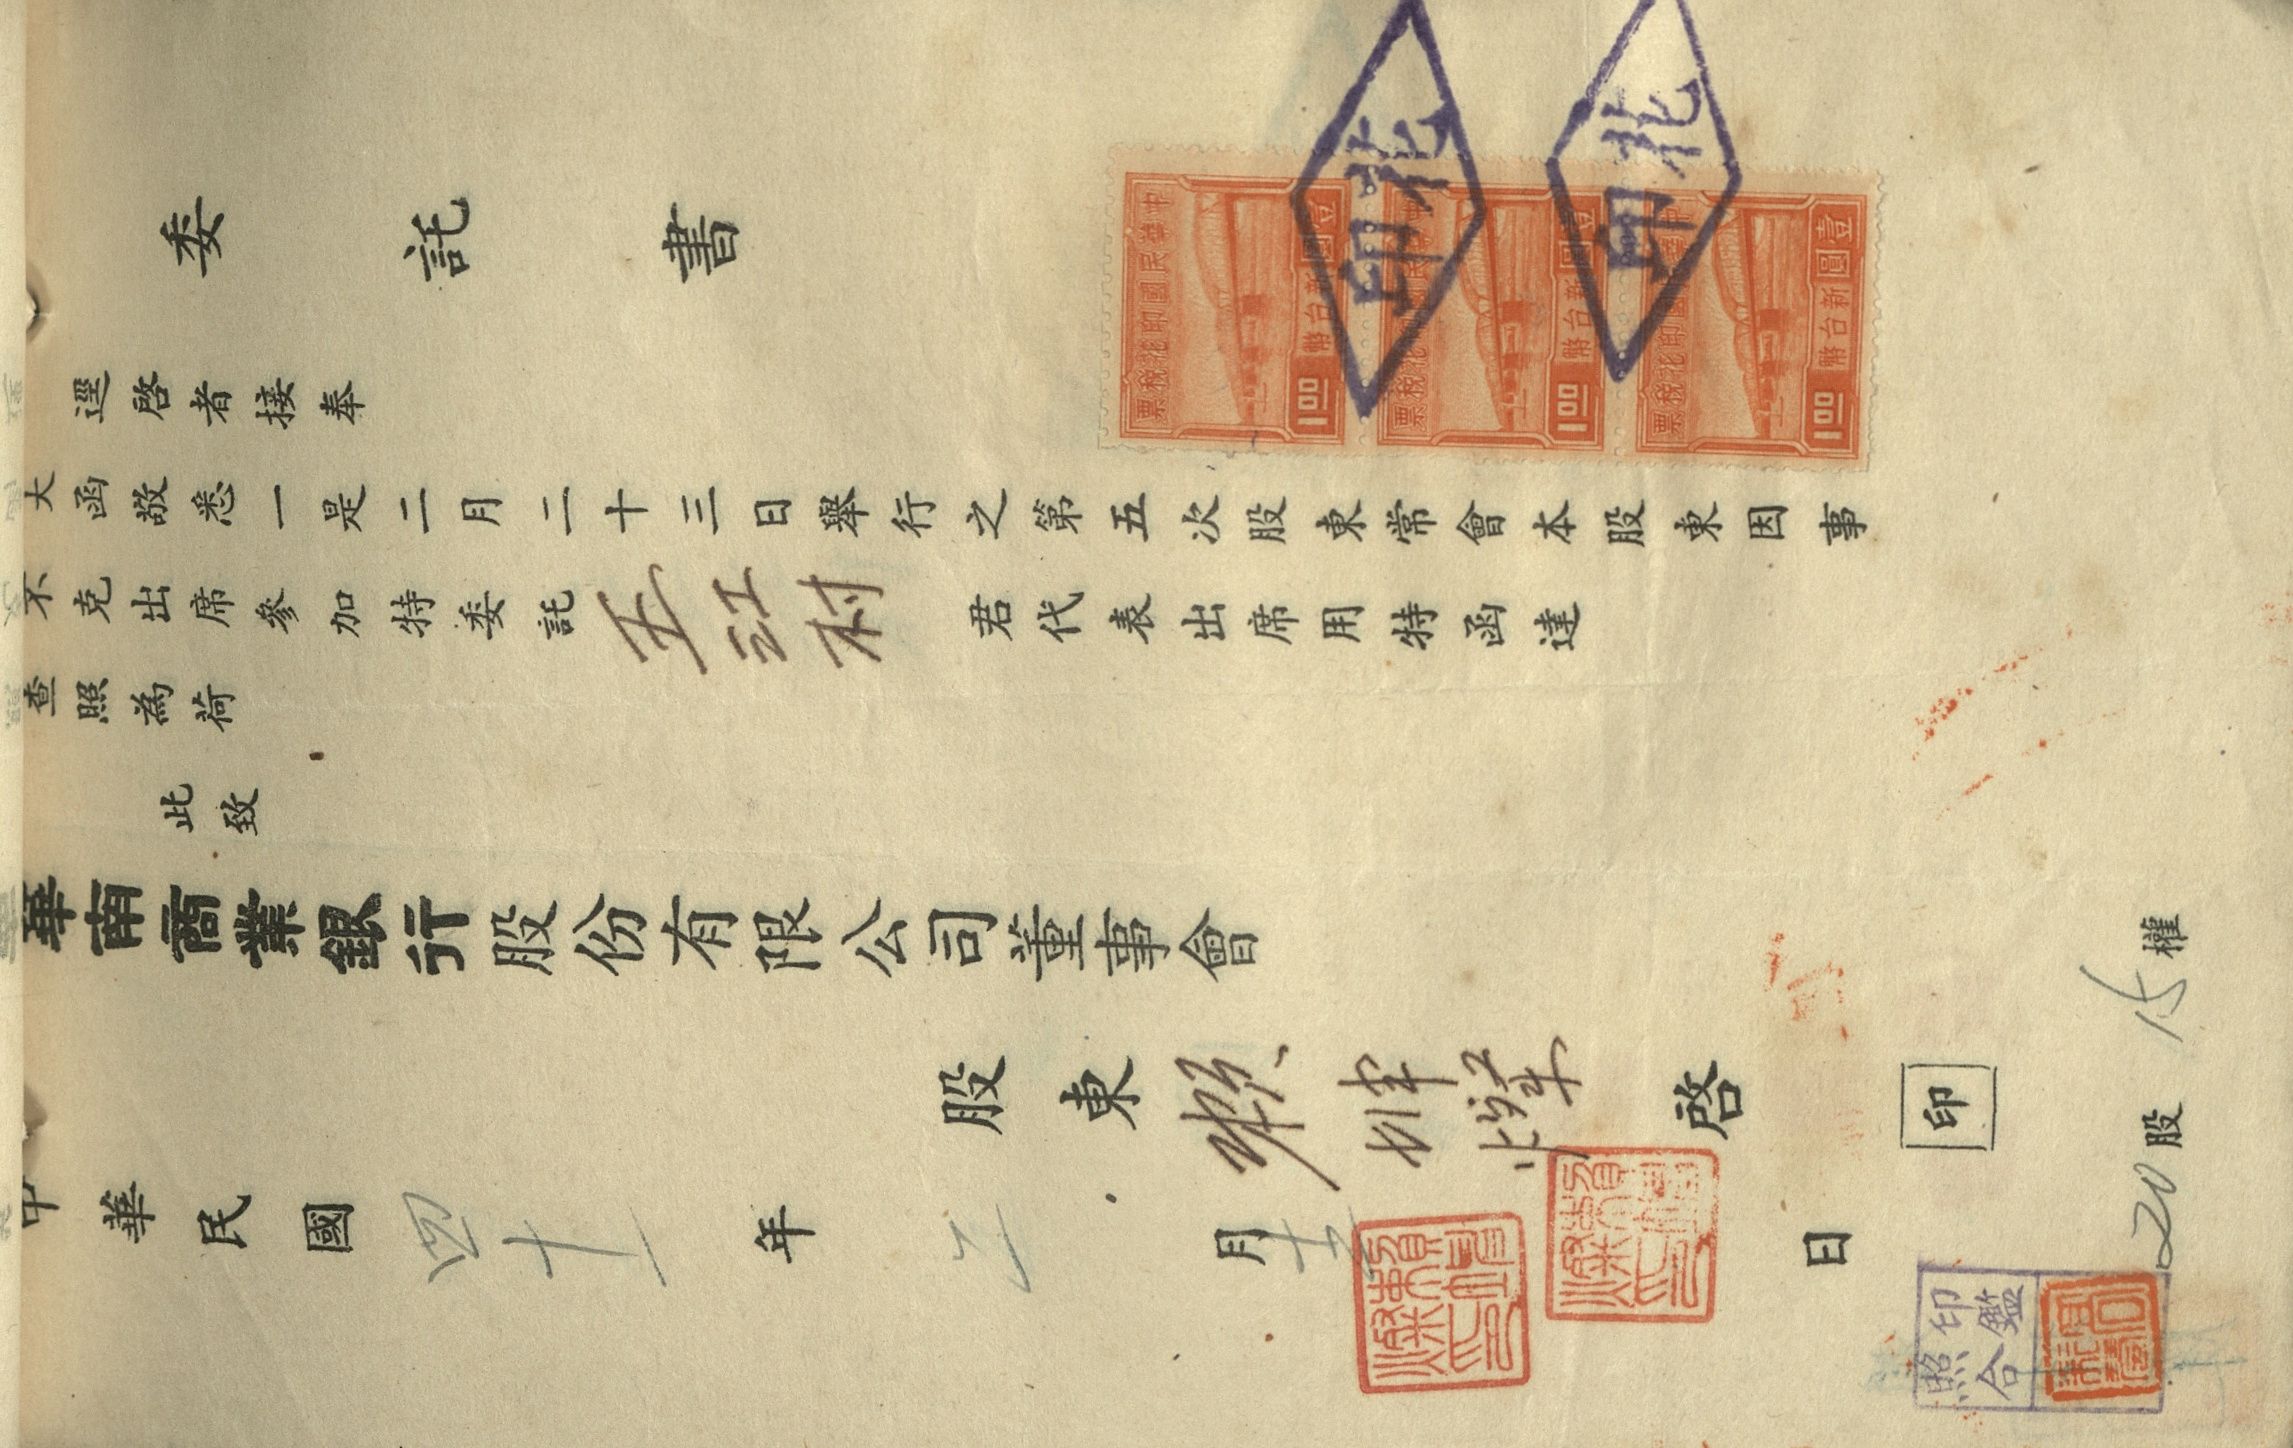 委託書
逕啓者接奉
大函敬悉一是二月二十三日舉行之第五次股東常會本股東因事
不克出席參加特委託王江村君代表出席用特函達
查照為荷
此致
華南商業銀行股份有限公司董事會
股東賴緯燦啓 印
中華民國四十一年二月十五日
20股 15權
中華民國印花稅票
壹圓 新台幣 1.00
中華民國印花稅票
壹圓 新台幣 1.00
中華民國印花稅票
壹圓 新台幣 1.00
北印
北印
印鑑
照合